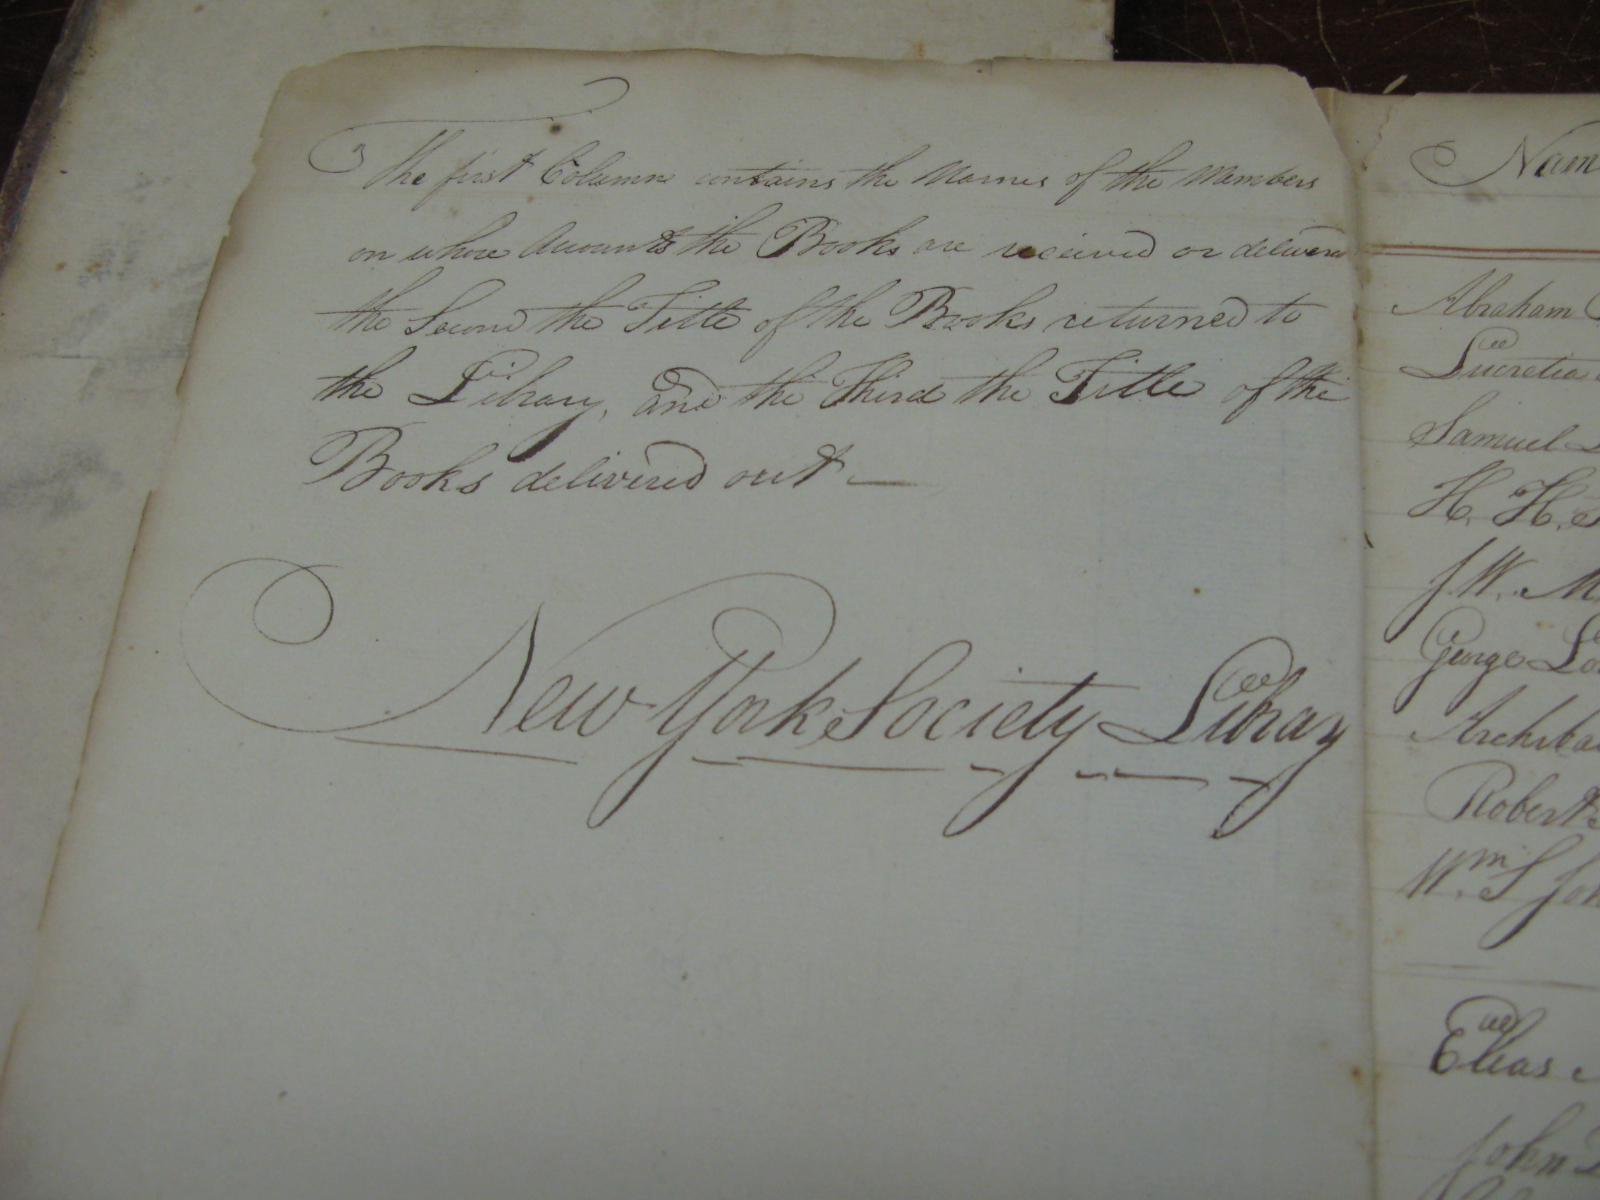 The first Column contains the Names of the Members
on whose Accounts the Books are received or delivered
the Second the Title of the Books returned to
the Library, and the Third the Title of the
Books delivered out —
New York Society Library
Nam
Abraham
Lucretia
Samuel
H. H.
J. W. M
George Lo
Archiba
Robert
Wm S Joh
Elias
John